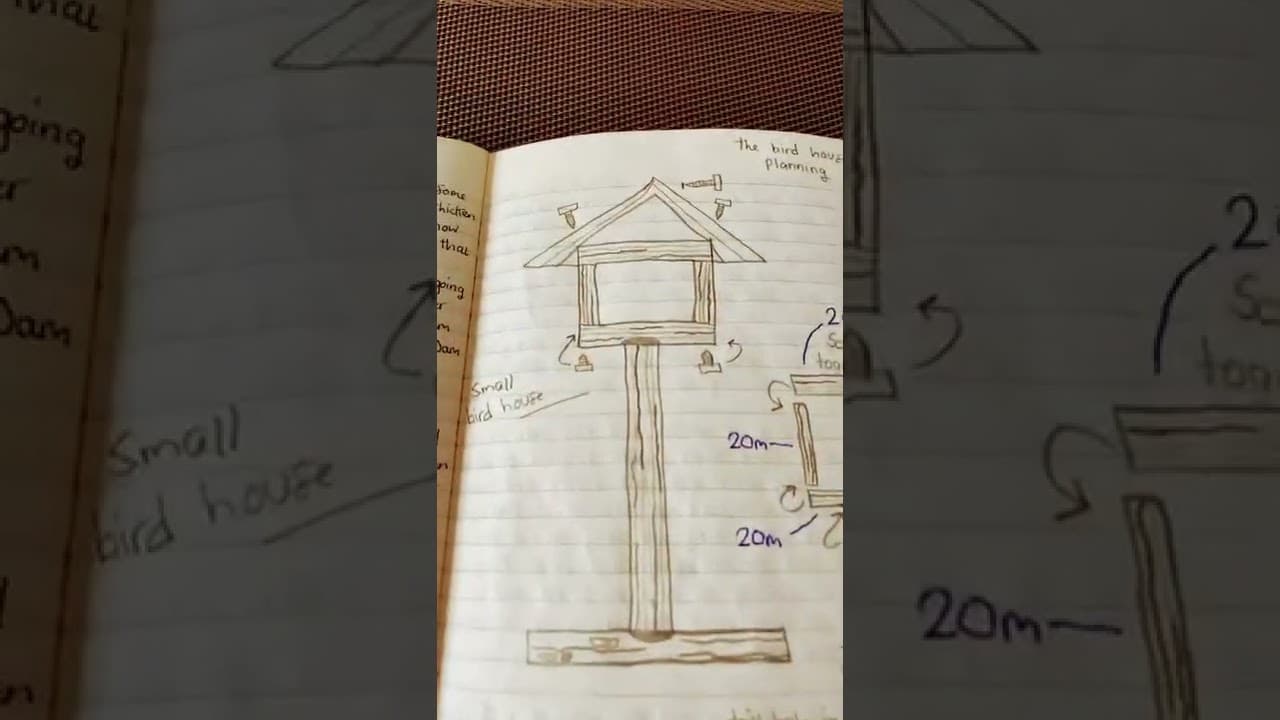 the bird hous
planning
some
hicken
now
that
going
r
m
Dam
Small
bird house
2
So
toge
20m
20m